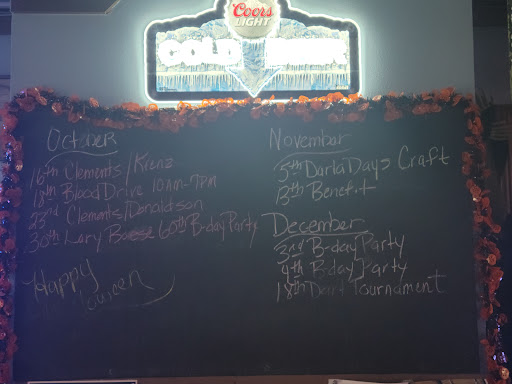 Coors
LIGHT
COLD BEER
October
16th Clements/Krenz
18th Blood Drive 10AM-7PM
23rd Clements/Donaldson
30th Lory 60th B-day Party
Happy
Halloween
November
5th Darla Days Craft
13th Benefit
December
3rd B-day Party
4th B-day Party
18th Dart Tournament